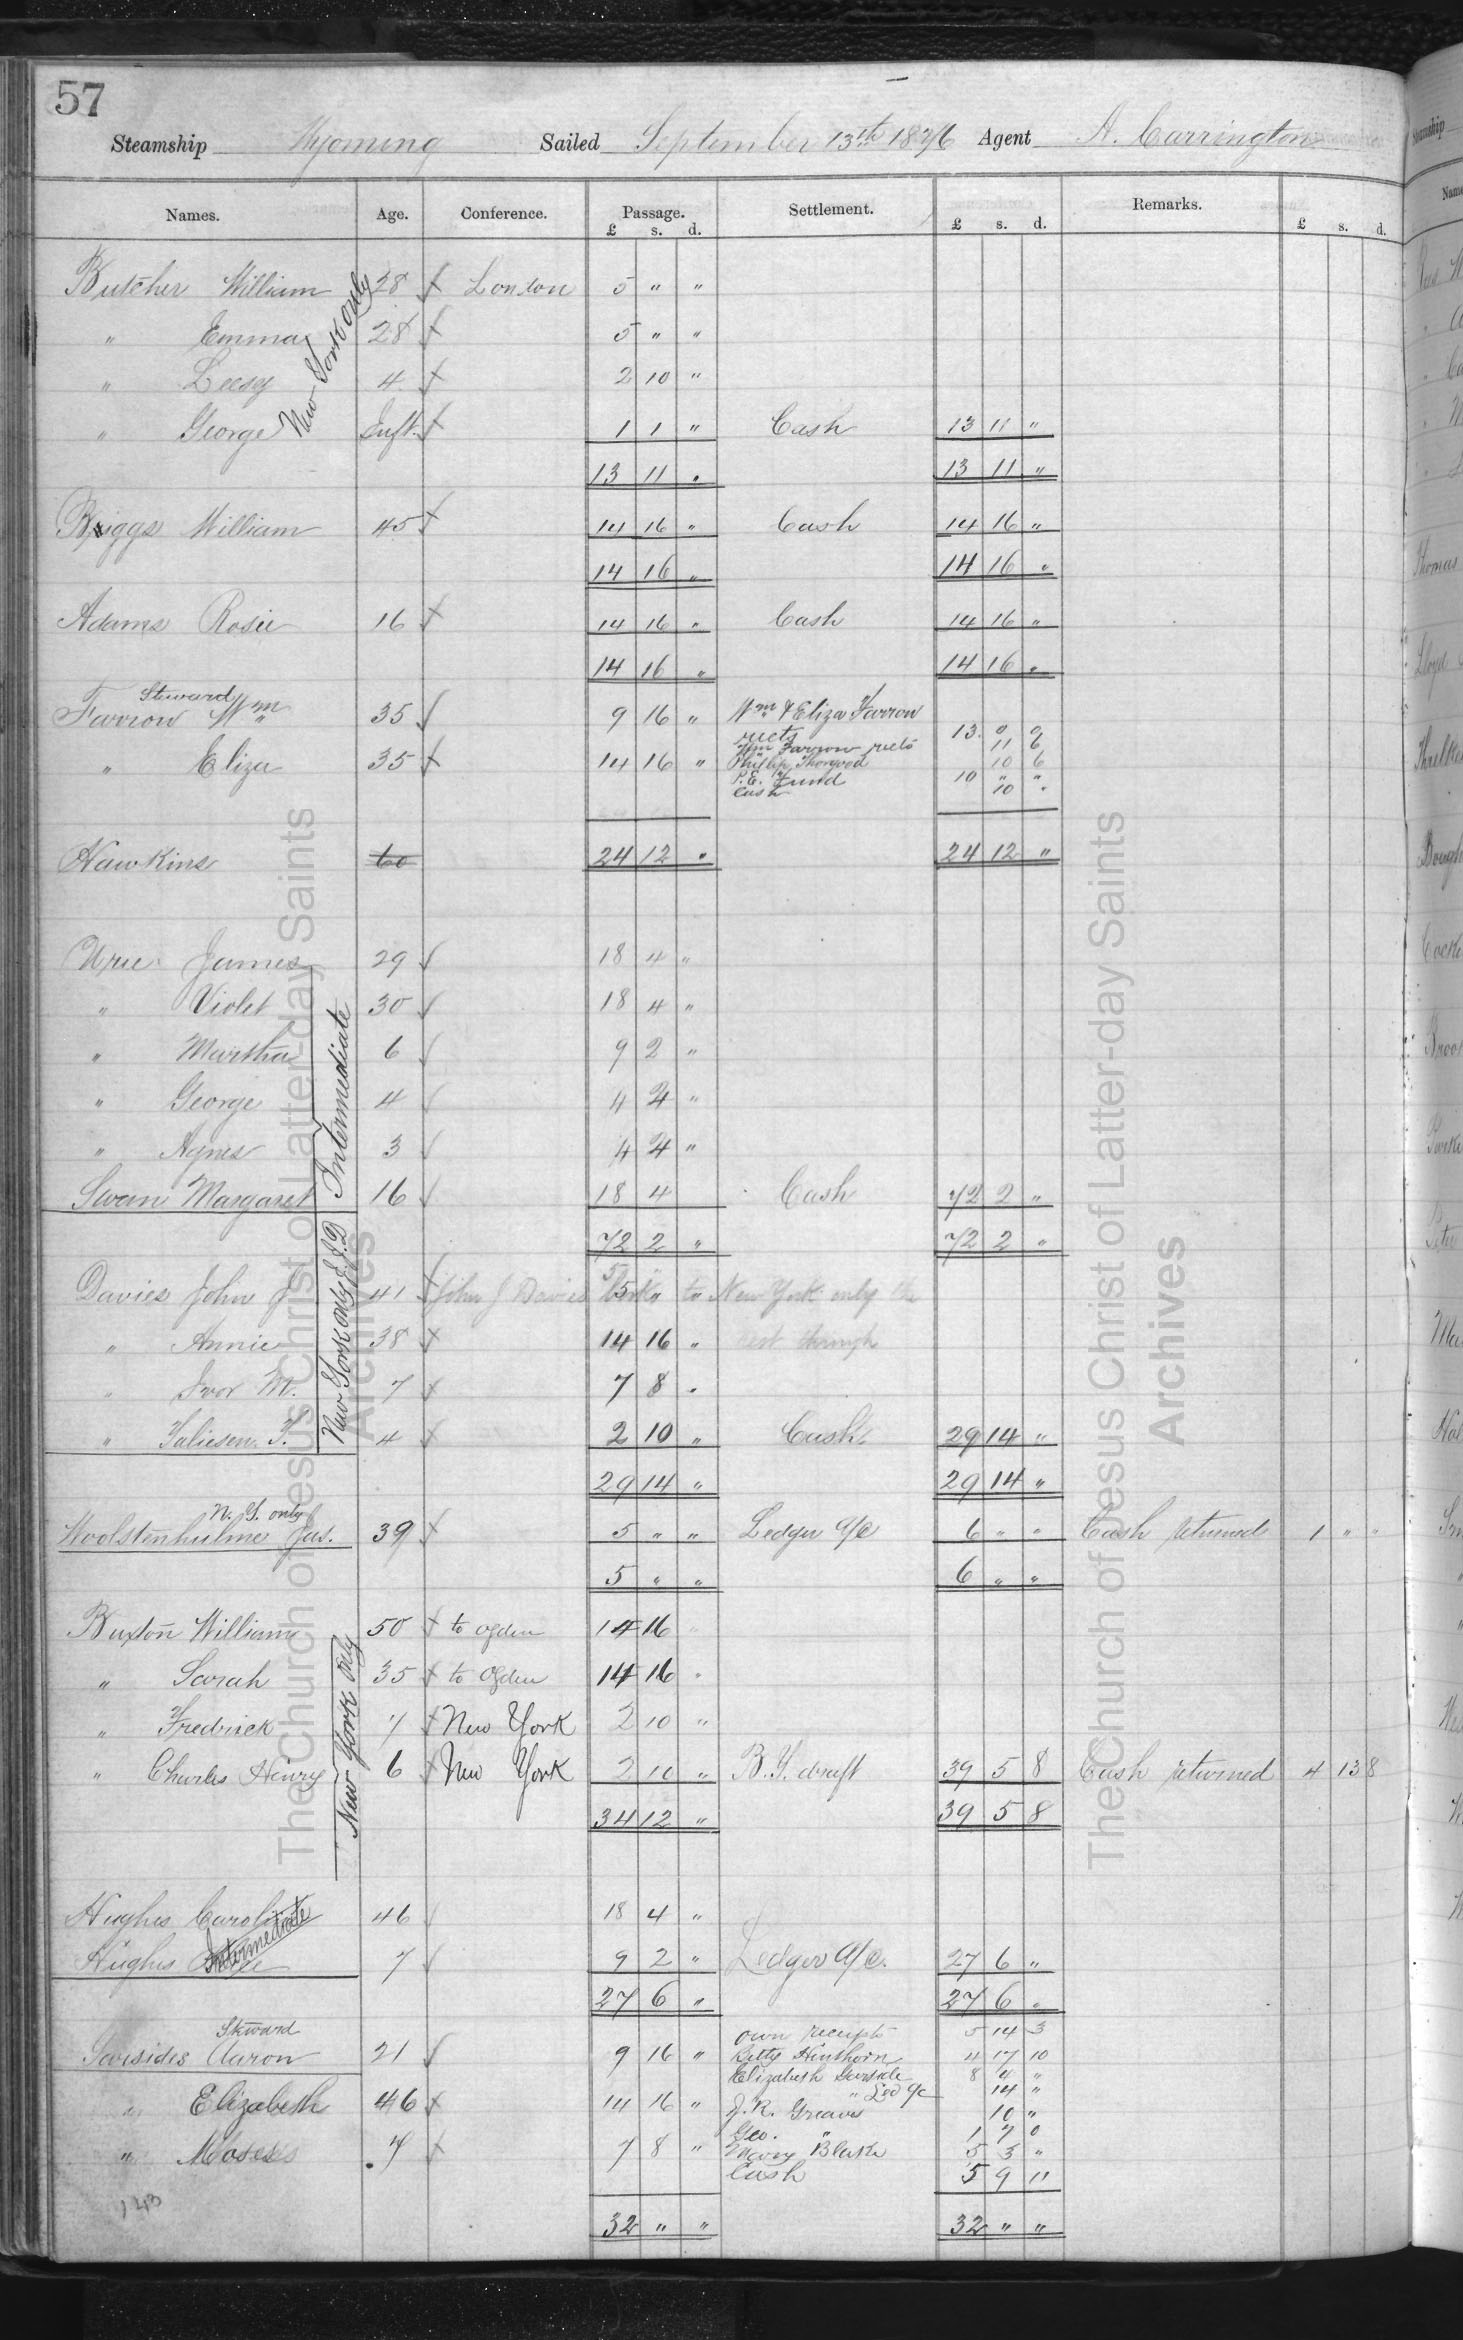 57
Steamship Wyoming Sailed September 13th 1876 Agent A. Carrington
Names. Age. Conference. Passage. Settlement. Remarks.
£ s. d. £ s. d. £ s. d.
Butcher William 28 London 5 " "
" Emma 28 5 " "
" Lucy 4 2 10 "
" George Inft. 1 1 " Cash 13 11 "
New York only
13 11 " 13 11 "
Briggs William 45 14 16 " Cash 14 16 "
14 16 " 14 16 "
Adams Rosie 16 14 16 " Cash 14 16 "
14 16 " 14 16 "
Steward
Farrow Wm 35 9 16 " Wm & Eliza Farrow
rects 13 0 0
Wm Farrow rects 11 6
" Eliza 35 14 16 " Phillip Thorgood 10 6
P.E. Fund 10 " "
Cash 10 "
Hawkins 60 24 12 " 24 12 "
Urie James 29 18 4 "
" Violet 30 18 4 "
" Martha 6 9 2 "
" George 4 4 4 "
" Agnes 3 4 4 "
Swan Margaret 16 18 4 Cash 72 2 "
Intermediate
72 2 " 72 2 "
Davies John J 41 John J Davies 5 " " to New York only the
" Annie 38 14 16 " rest through
" Ivor M. 7 7 8 "
" Taliesen T. 4 2 10 " Cash 29 14 "
New York only J.J.D
29 14 " 29 14 "
N. Y. only
Woolstenhulme Jas. 39 5 " " Ledger a/c 6 " " Cash returned 1 " "
5 " " 6 " "
Buxton William 50 to Ogden 14 16 "
" Sarah 35 to Ogden 14 16 "
" Fredrick 7 New York 2 10 "
" Charles Henry 6 New York 2 10 " B.Y. draft 39 5 8 Cash returned 4 13 8
New York only
34 12 " 39 5 8
Hughes Caroline 46 18 4 "
Hughes 7 9 2 " Ledger a/c. 27 6 "
Intermediate
27 6 " 27 6 "
Steward own receipts 5 14 3
Garsides Aaron 21 9 16 " Betty Hinthorn 4 17 10
Elizabeth Garside 8 4 "
" Led a/c 14 "
" Elizabeth 46 14 16 " J.R. Greaves 10 "
Geo. " 1 7 0
" Moses 7 7 8 " Mary Blake 5 3 "
Cash 5 9 11
143
32 " " 32 " "
The Church of Jesus Christ of Latter-day Saints
Archives
The Church of Jesus Christ of Latter-day Saints
Archives